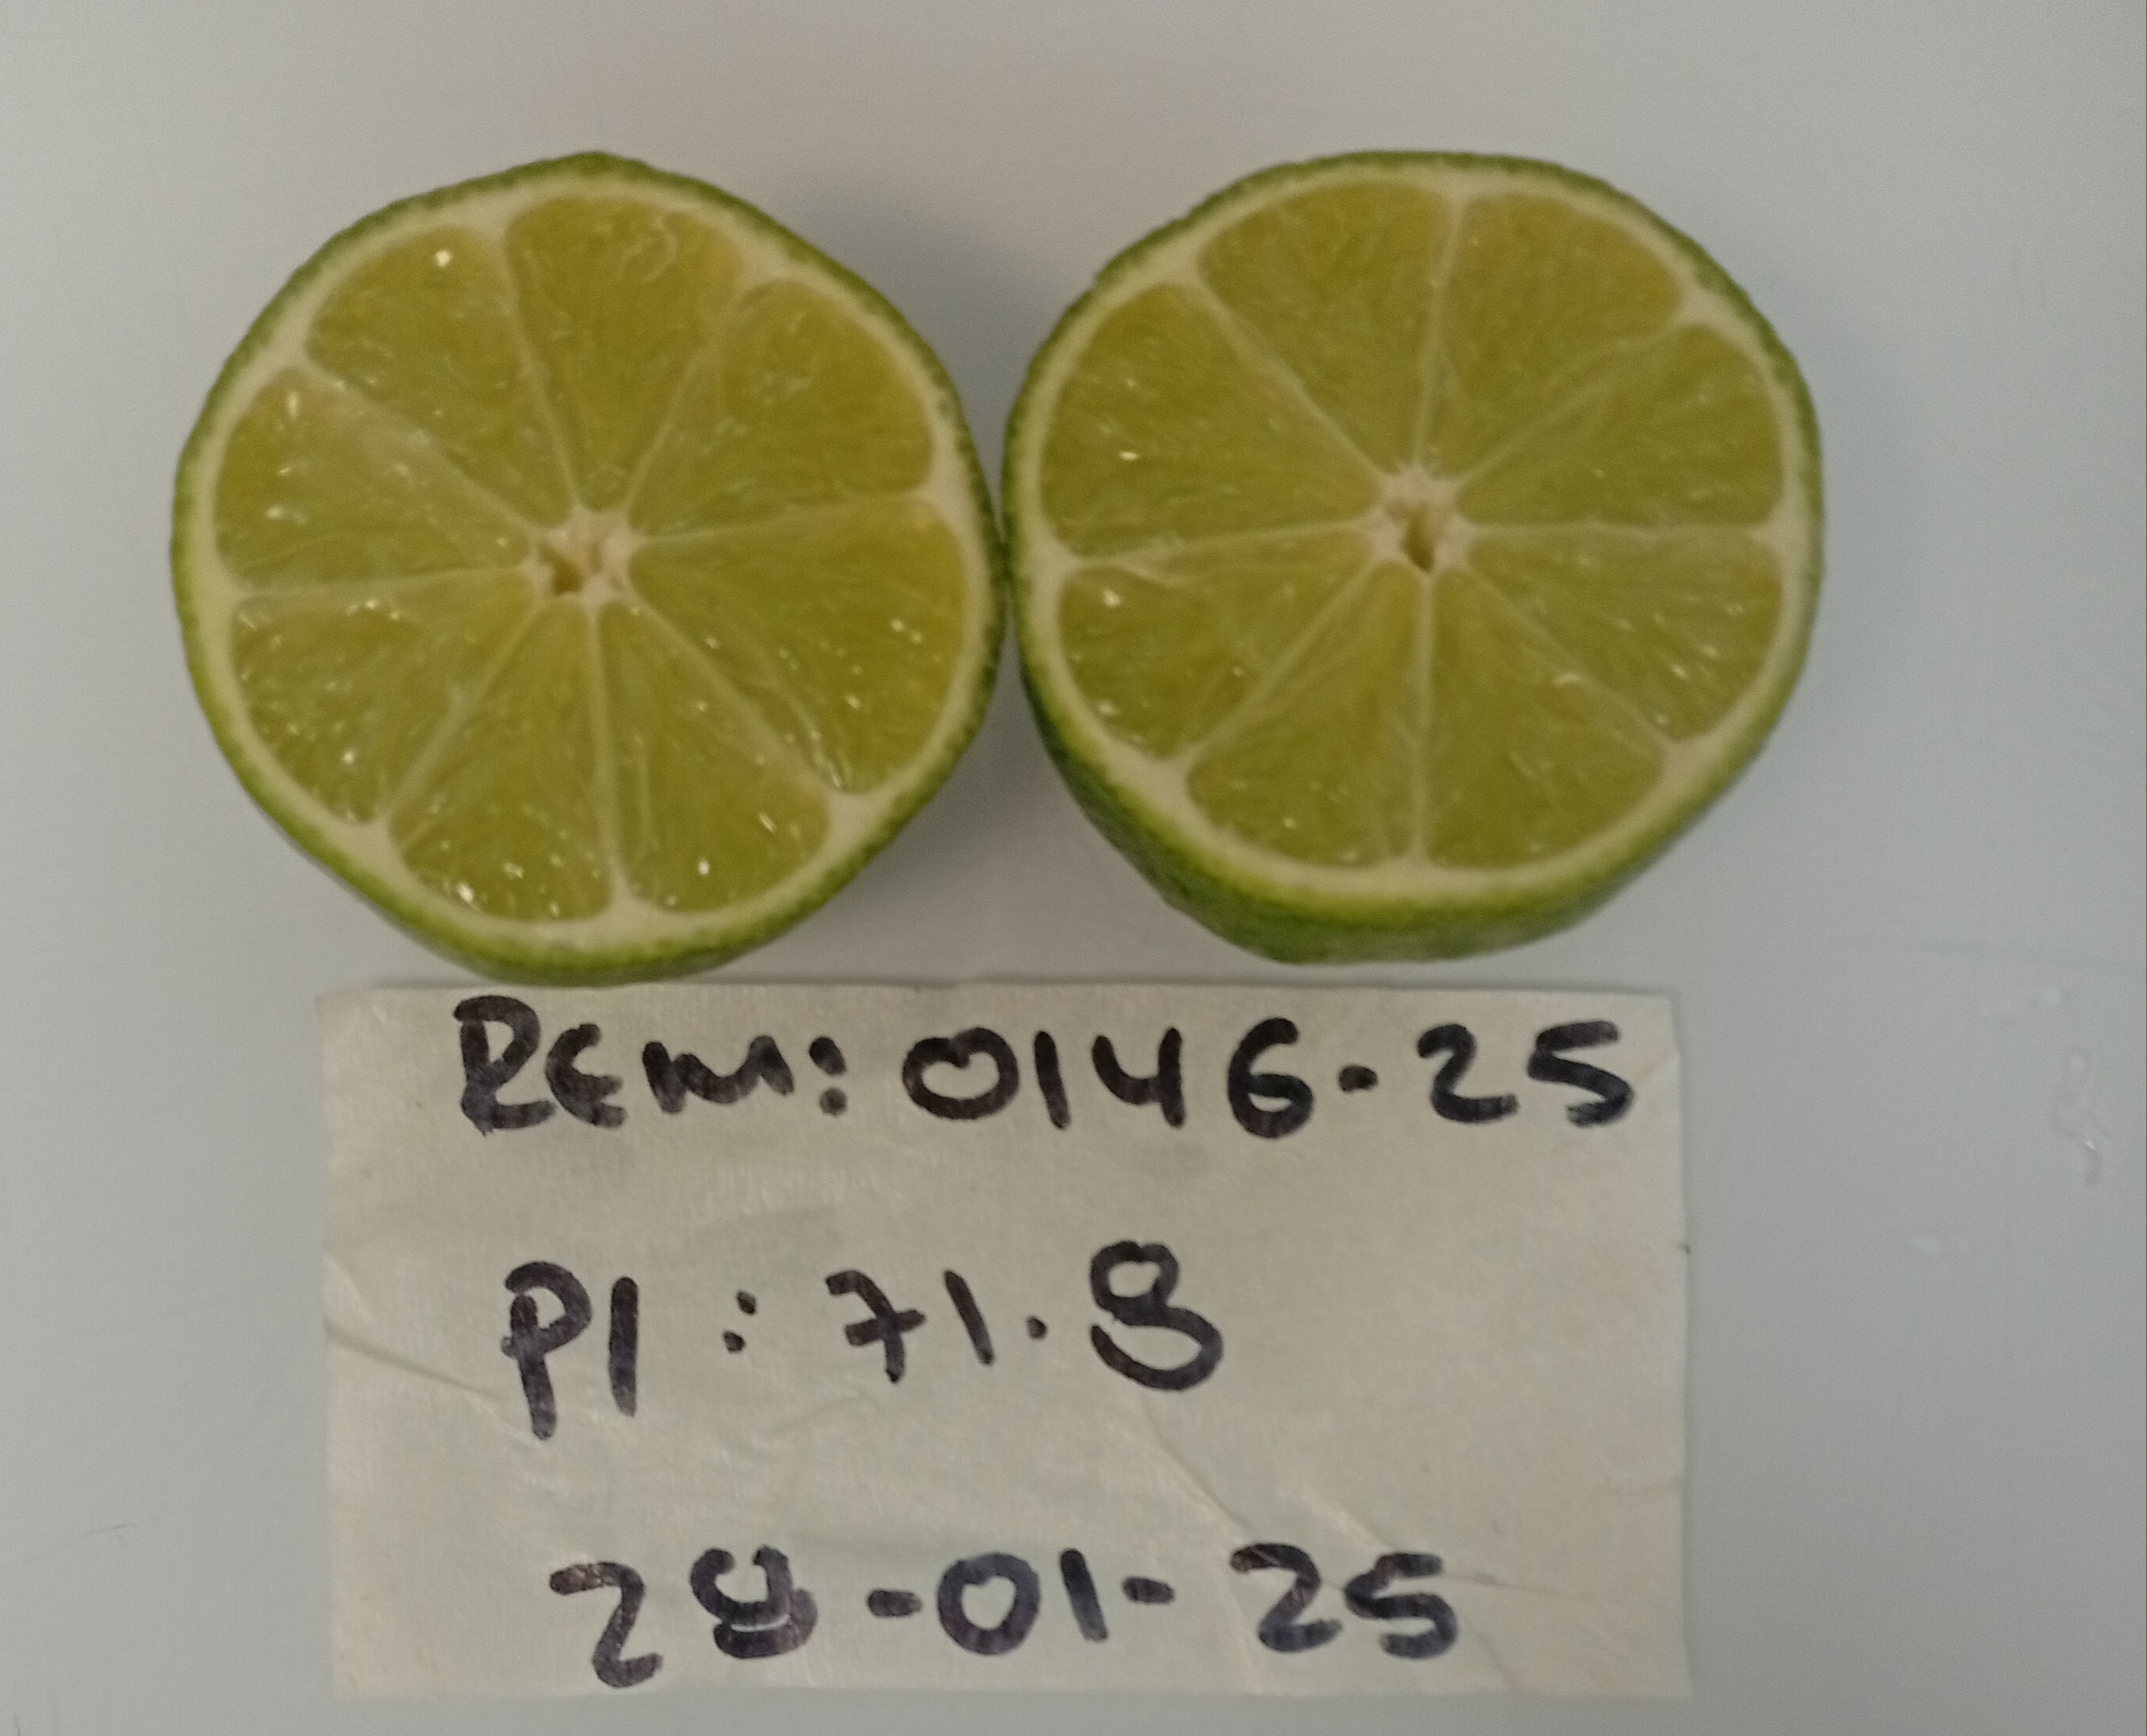 REM: 0146-25
PI: 71.8
28-01-25